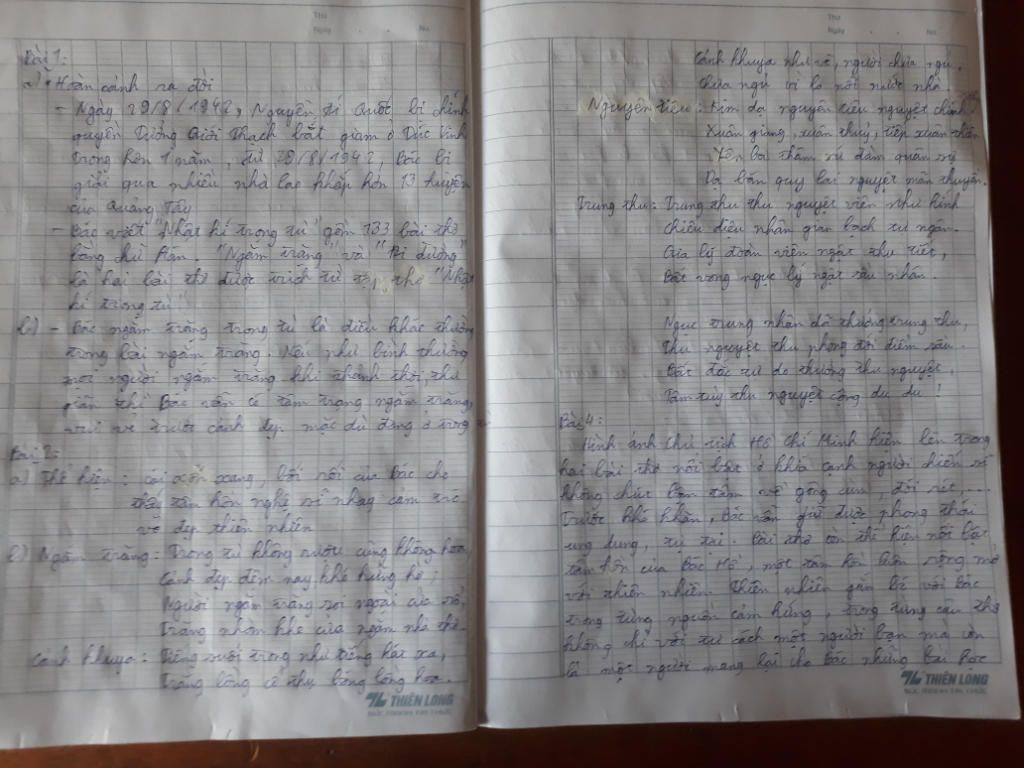 Thứ
Ngày
No.
Bài 1:
a) • Hoàn cảnh ra đời
- Ngày 29/8/1942, Nguyễn Ái Quốc bị chính
quyền Tưởng Giới Thạch bắt giam ở Túc Vinh
trong hơn 1 năm, từ 29/8/1942, Bác bị
giải qua nhiều nhà lao khắp hơn 13 huyện
của Quảng Tây
- Bác viết "Nhật kí trong tù" gồm 133 bài thơ
bằng chữ Hán. "Ngắm trăng" và "Đi đường"
là hai bài thơ được trích từ tập thơ "Nhật
kí trong tù"
b) - Bác ngắm trăng trong tù là điều khác thường
trong bài ngắm trăng. Nếu như bình thường
mọi người ngắm trăng khi thảnh thơi, thư
giãn thì Bác vẫn có tâm trạng ngắm trăng,
vui vẻ trước cảnh đẹp mặc dù đang ở trong tù
Bài 2:
a) Thể hiện: cái xốn xang, bối rối của Bác cho
thấy tâm hồn nghệ sĩ nhạy cảm trước
vẻ đẹp thiên nhiên
b) Ngắm trăng: Trong tù không rượu cũng không hoa,
Cảnh đẹp đêm nay khó hững hờ;
Người ngắm trăng soi ngoài cửa sổ,
Trăng nhòm khe cửa ngắm nhà thơ.
Cảnh khuya: Tiếng suối trong như tiếng hát xa,
Trăng lồng cổ thụ bóng lồng hoa.
THIÊN LONG
SỨC MẠNH TRI THỨC
Thứ
Ngày
No.
Cảnh khuya như vẽ, người chưa ngủ,
Chưa ngủ vì lo nỗi nước nhà.
Nguyên tiêu: Kim dạ nguyên tiêu nguyệt chính
Xuân giang, xuân thuỷ, tiếp xuân thiên
Yên ba thâm xứ đàm quân sự
Dạ bán quy lai nguyệt mãn thuyền.
Trung thu: Trung thu thu nguyệt viên như kính
Chiếu diệu nhân gian bạch tự ngân.
Gia lý đoàn viên ngật thu tiết,
Bất vong ngục lý ngật sầu nhân.
Ngục trung nhân dã thưởng trung thu,
Thu nguyệt thu phong đới điểm sầu.
Bất đắc tự do thưởng thu nguyệt,
Tâm tuỳ thu nguyệt cộng du du!
Bài 4:
Hình ảnh Chủ tịch Hồ Chí Minh hiện lên trong
hai bài thơ nổi bật ở khía cạnh người chiến sĩ
không chút bận tâm về gông cùm, đói rét....
Trước khó khăn, Bác vẫn giữ được phong thái
ung dung, tự tại. Bài thơ còn thể hiện nổi bật
tâm hồn của Bác Hồ, một tâm hồn luôn rộng mở
với thiên nhiên. Thiên nhiên gắn bó với Bác
trong từng nguồn cảm hứng, trong từng câu thơ
không chỉ với tư cách một người bạn mà còn
là một người mang lại cho Bác những bài học
THIÊN LONG
SỨC MẠNH TRI THỨC